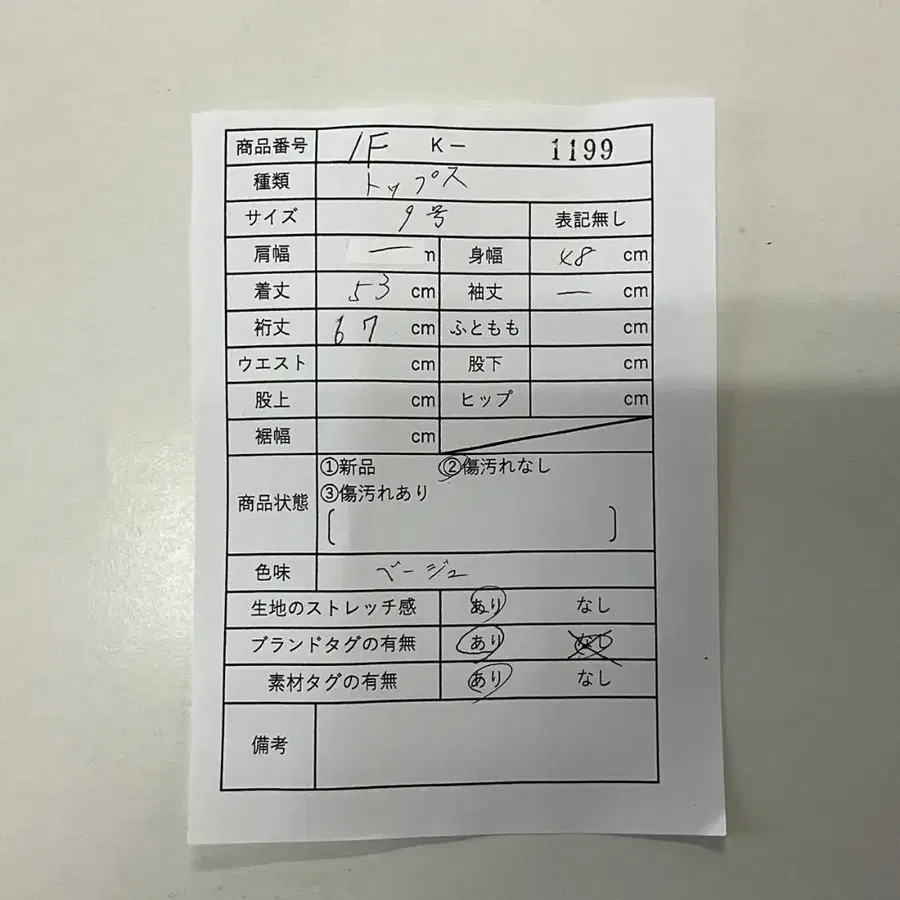 商品番号 1F K− 1199
種類 トップス
サイズ 9号 表記無し
肩幅 — n 身幅 48 cm
着丈 53 cm 袖丈 — cm
裄丈 67 cm ふともも cm
ウエスト cm 股下 cm
股上 cm ヒップ cm
裾幅 cm
商品状態 ①新品 ②傷汚れなし
③傷汚れあり
[ ]
色味 ベージュ
生地のストレッチ感 あり なし
ブランドタグの有無 あり なし
素材タグの有無 あり なし
備考